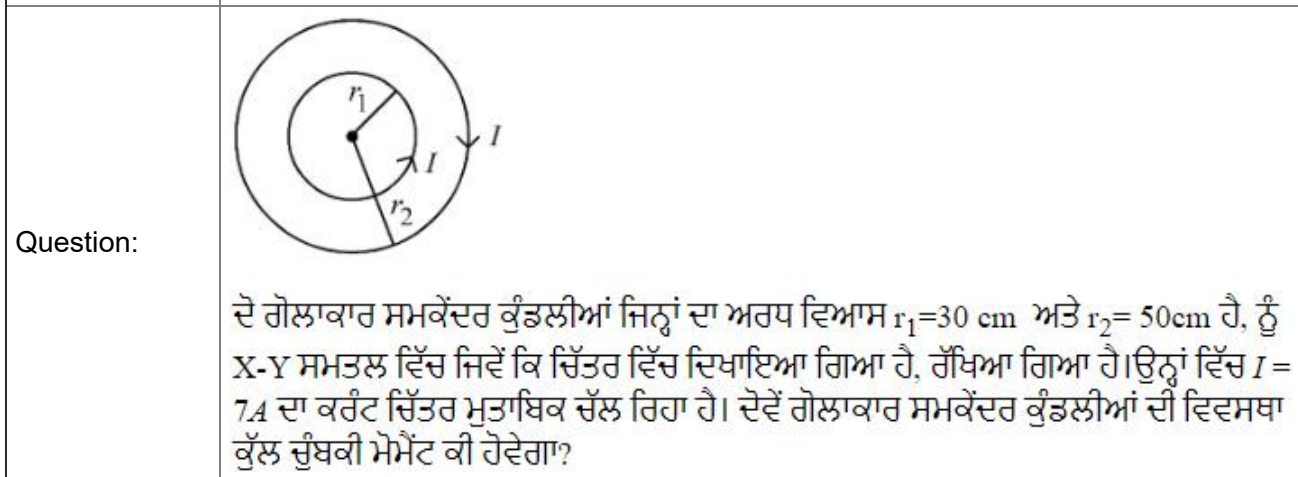 r1
I
I
r2
Question:
ਦੋ ਗੋਲਾਕਾਰ ਸਮਕੇਂਦਰ ਕੁੰਡਲੀਆਂ ਜਿਨ੍ਹਾਂ ਦਾ ਅਰਧ ਵਿਆਸ r1=30 cm ਅਤੇ r2= 50cm ਹੈ, ਨੂੰ
X-Y ਸਮਤਲ ਵਿੱਚ ਜਿਵੇਂ ਕਿ ਚਿੱਤਰ ਵਿੱਚ ਦਿਖਾਇਆ ਗਿਆ ਹੈ, ਰੱਖਿਆ ਗਿਆ ਹੈ।ਉਨ੍ਹਾਂ ਵਿੱਚ I =
7A ਦਾ ਕਰੰਟ ਚਿੱਤਰ ਮੁਤਾਬਿਕ ਚੱਲ ਰਿਹਾ ਹੈ। ਦੋਵੇਂ ਗੋਲਾਕਾਰ ਸਮਕੇਂਦਰ ਕੁੰਡਲੀਆਂ ਦੀ ਵਿਵਸਥਾ
ਕੁੱਲ ਚੁੰਬਕੀ ਮੋਮੈਂਟ ਕੀ ਹੋਵੇਗਾ?